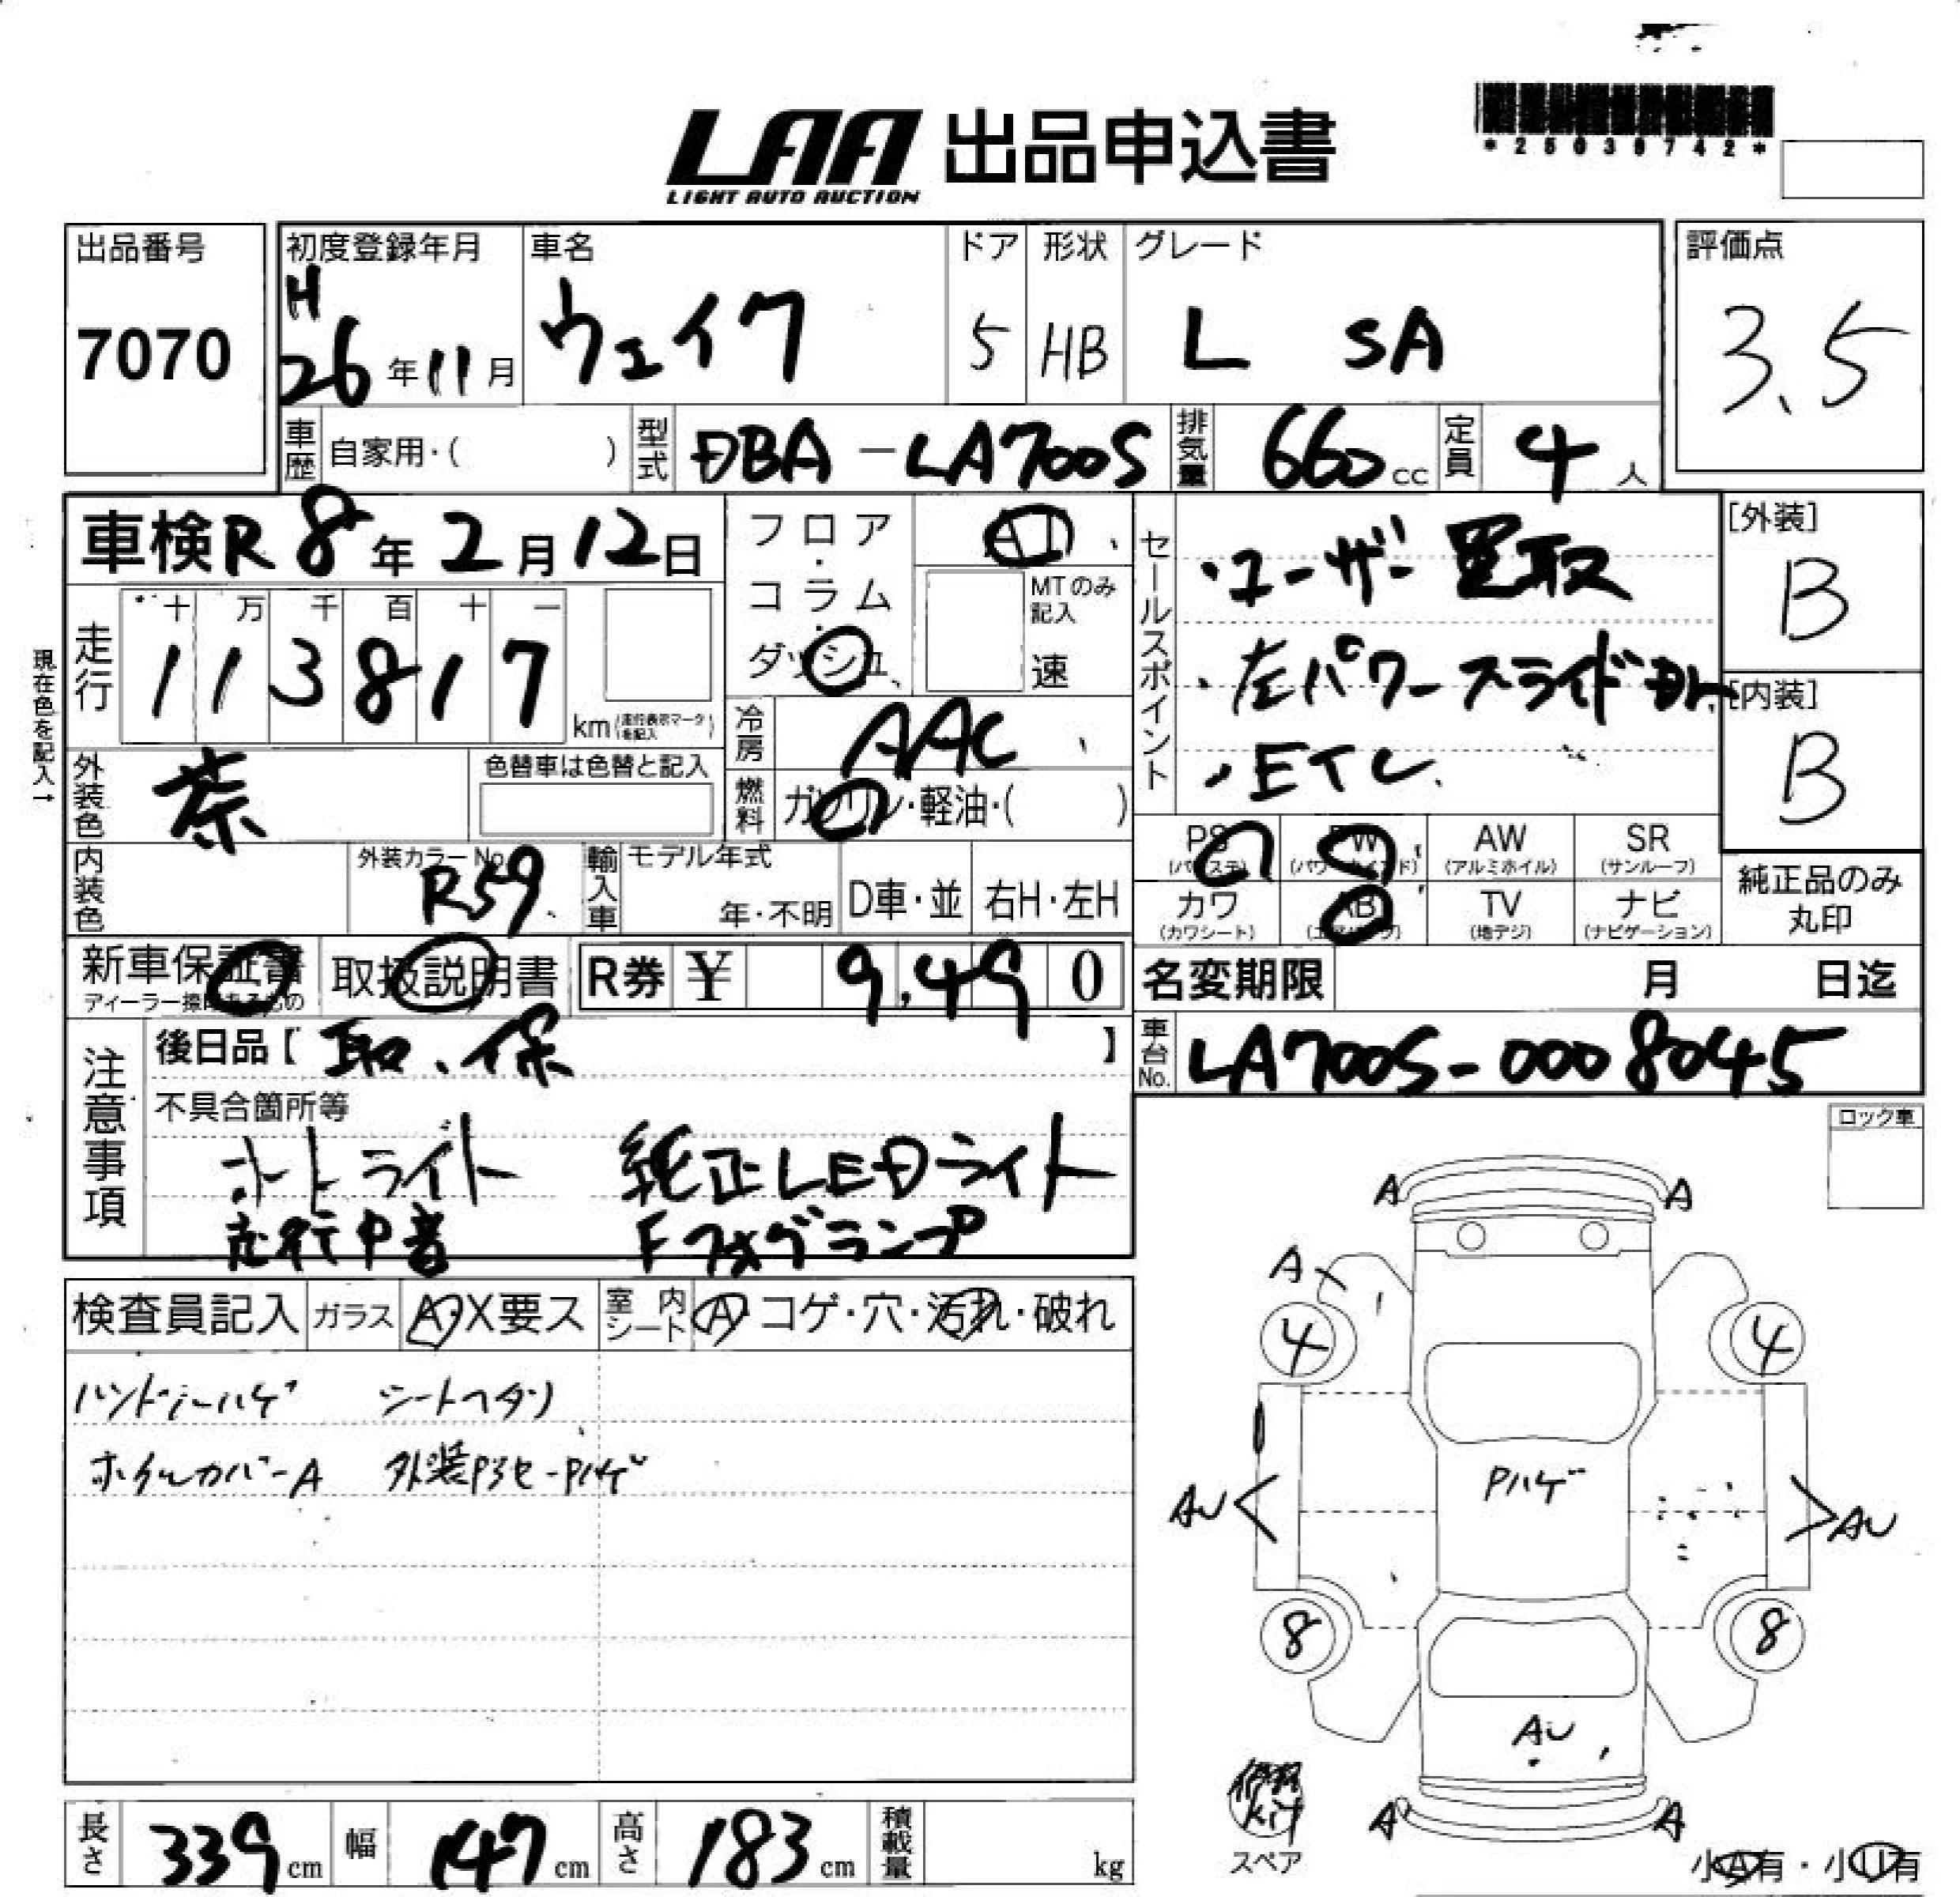 LAA 出品申込書
LIGHT AUTO AUCTION
*25039742*
出品番号 7070
初度登録年月 H26年11月
車名 ウェイク
ドア 5
形状 HB
グレード L SA
評価点 3.5
車歴 自家用・( )
型式 DBA-LA700S
排気量 660cc
定員 4人
車検 R8年2月12日
フロア・コラム・ダッシュ
MTのみ記入 速
セールスポイント
・ユーザー買取
・左パワースライドDr.
・ETC
[外装] B
[内装] B
現在色を記入→
走行 十万千百十一
113817 km(走行表示マークを記入)
冷房 AAC
燃料 ガソリン・軽油・( )
外装色 茶
色替車は色替と記入
内装色
外装カラーNo. R59
輸入車 モデル年式 年・不明
D車・並 右H・左H
PS (パワステ) PW (パワーウインド) AW (アルミホイル) SR (サンルーフ)
カワ (カワシート) AB (エアバッグ) TV (地デジ) ナビ (ナビゲーション)
純正品のみ丸印
新車保証書
取扱説明書
R券 ¥ 9,490
名変期限 月 日迄
車台No. LA700S-0008045
注意事項
後日品【取、保】
不具合箇所等
オートライト 純正LEDライト
走行中音 Fフォグランプ
ロック車
検査員記入 ガラス A・X要ス 室内シート A・コゲ・穴・汚れ・破れ
ハンドルハゲ シートヘタリ
ホイルカバーA 外装P3セ-Pハゲ
A A
A
4 4
AU Pハゲ AU
8 8
AU
A A
修理kit
スペア
小A有・小U有
長さ 339cm
幅 147cm
高さ 183cm
積載量 kg